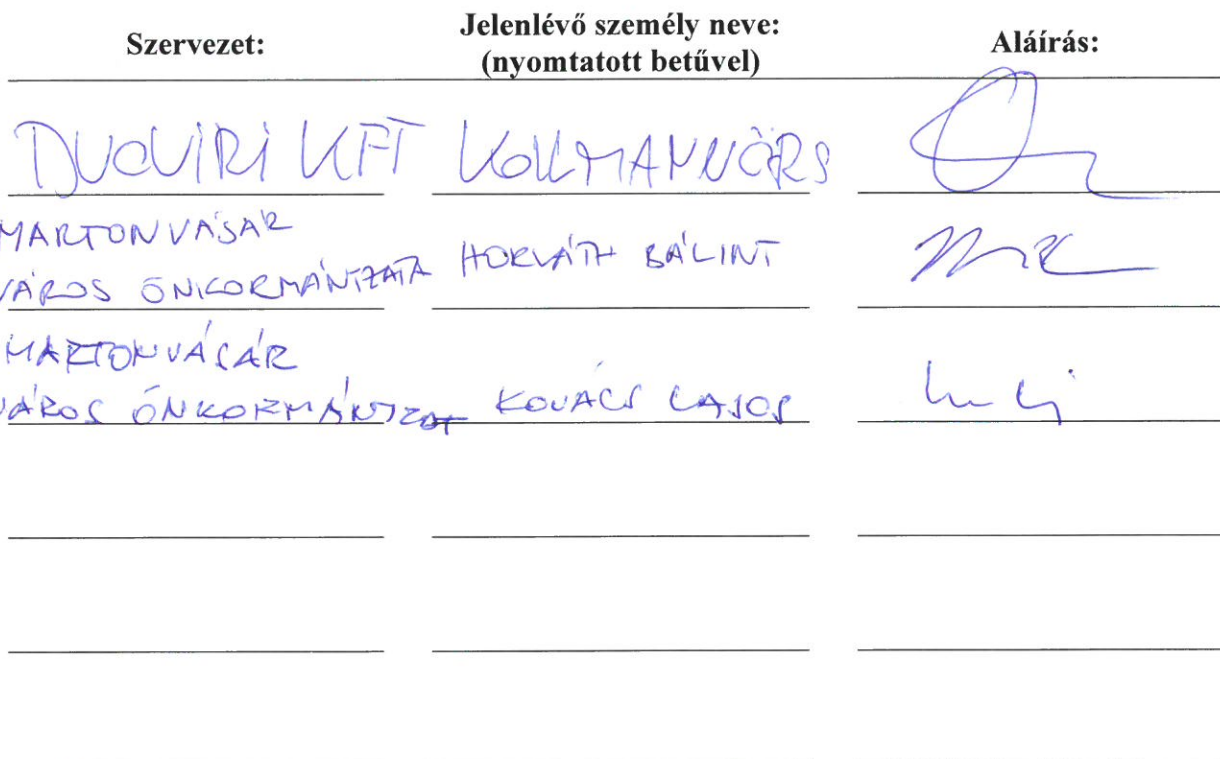 Szervezet: Jelenlévő személy neve: (nyomtatott betűvel) Aláírás:
DUOVIRI KFT KOLLMANN ÖRS
MARTONVÁSÁR
VÁROS ÖNKORMÁNYZATA HORVÁTH BÁLINT
MARTONVÁSÁR
VÁROS ÖNKORMÁNYZAT KOVÁCS LAJOS